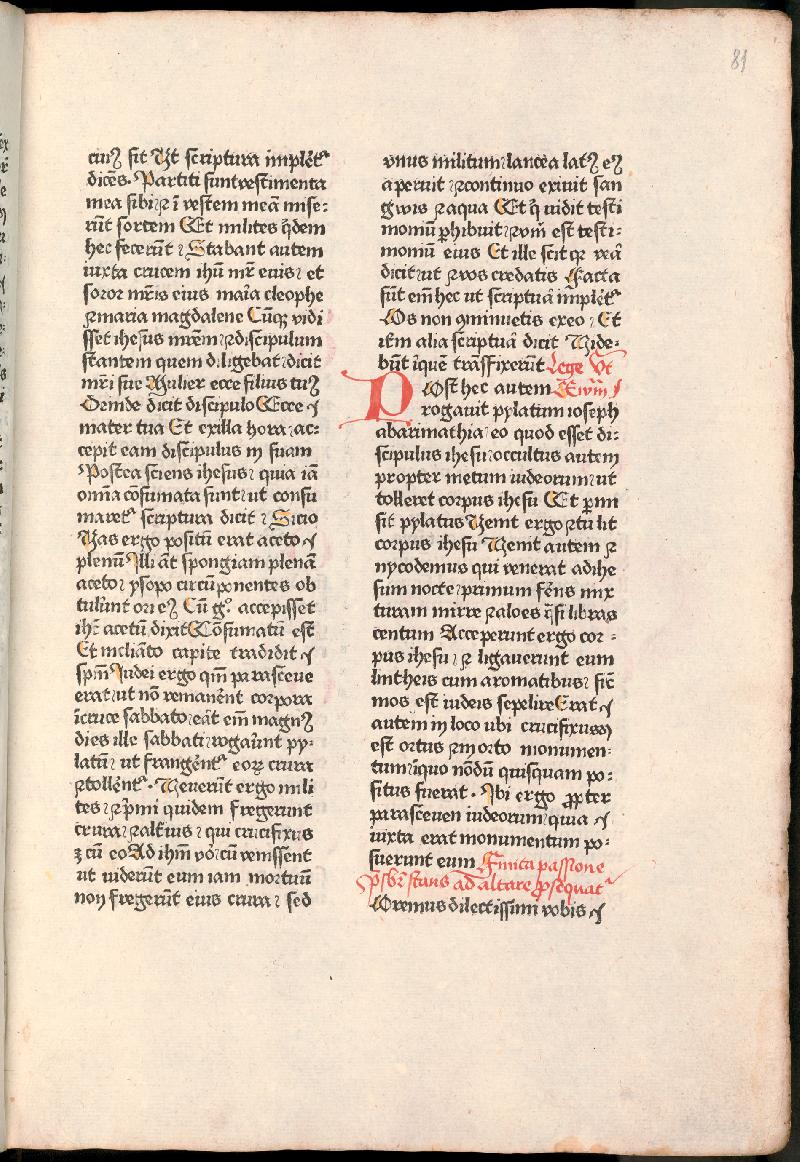 81
cuiꝰ sit Ut scriptura implet᷑
dice̅s. Partiti sunt vestimenta
mea sibi ⁊ i̅ vestem mea̅ mise⸗
ru̅t sortem Et milites q̇dem
hec feceru̅t Stabant autem
iuxta crucem ihu̅ mr̅ eius et
soror mr̅is eius mar̅ia cleophe
⁊ maria magdalene Cu̅q; vidi
sset ihesus mr̅em ⁊ discipulum
stantem quem diligebat dicit
mr̅i sue Mulier ecce filius tuꝰ
Deinde dicit discipulo Ecce
mater tua Et exilla hora ac⸗
cepit eam discipulus in suam
Postea sciens ihesus quia ia̅
om̅ia co̅sumata sunt ut consu
maret᷑ scriptura dicit Sicio
Vas ergo positu̅ erat aceto
plenu̅ Illi a̅t spongiam plena̅
aceto ysopo circu̅ponentes ob
tuleru̅t ori eꝰ Cu̅ g° accepisset
ihc̅ acetu̅ dixit Co̅sumatu̅ est
Et inclia̅to capite tradidit
spm̅ Iudei ergo qm̅ parasceue
erat ut no̅ remanere̅t corpora
i̅ cruce sabbato era̅t em̅ magnꝰ
dies ille sabbati rogaueru̅t py⸗
latu̅ ut frangere̅t᷑ eoꝝ crura
⁊ tollere̅t᷑. Veneru̅t ergo mili
tes ⁊ p̅mi quidem fregerunt
crura ⁊ alterius qui crucifixus
ꝫ cu̅ eo Ad ihm̅ vo̅ cu̅ venissent
ut videru̅t eum iam mortuu̅
non fregeru̅t eius crura sed
vnus militum lancea latꝰ eꝰ
aperuit ⁊ continuo exiuit san
gwis ⁊ aqua Et q̇ vidit testi
moniu̅ ꝑhibuit ⁊ vm̅ est testi⸗
moniu̅ eius Et ille scit qꝛ vea̅
dicit ut ⁊ vos credatis Facta
su̅t em̅ hec ut scriptua̅ implet᷑
Os non ꝯminuetis exeo Et
ite̅m alia scriptua̅ dicit Vide⸗
bu̅t i̅quem tra̅sfixeru̅t Lege Vt
Post hec autem Ewm̅
rogauit pylatum ioseph
abarimathia eo quod esset di⸗
scipulus ihesu occultus autem
propter metum iudeorum ut
tolleret corpus ihesu Et ꝑmi
sit pylatus Venit ergo ⁊ tulit
corpus ihesu Venit autem ⁊
nycodemus qui venerat adihe
sum nocte primum fere̅ns mix
turam mirre ⁊ aloes q̅si libras
centum Acceperunt ergo cor⸗
pus ihesu ⁊ ligauerunt eum
lintheis cum aromatibus sic̅
mos est iudeis sepelire Erat
autem in loco ubi crucifixus
est ortus ⁊ in orto monumen⸗
tum i̅quo no̅du̅ quisquam po⸗
situs fuerat. Ibi ergo ꝓpter
parasceuen iudeorum quia
iuxta erat monumentum po⸗
suerunt eum Finita passione
p̅sbr̅ stans ad altare ꝓsequat᷑
Oremus dilectissimi vobis